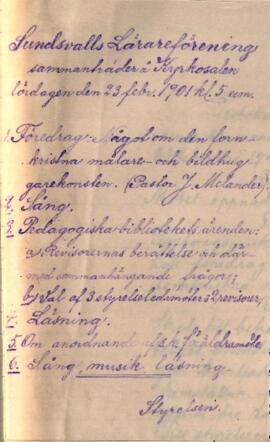 Sundsvalls Lärareförening
sammanträder å Kyrkosalen
lördagen den 23 febr. 1901 kl. 5 eem.
1. Föredrag: Något om den forn-
kristna målare- och bildhug
garekonsten. (Pastor J. Melander)
2. Sång.
3. Pedagogiska bibliotekets ärenden:
a) Revisorernas berättelse och där-
med sammanhängande frågor;
b) Val af 3 styrelseledamöter o. 2 revisorer;
4. Läsning.
5. Om anordnande af s.k. föräldramöte
6. Sång, musik, läsning.
Styrelsen.